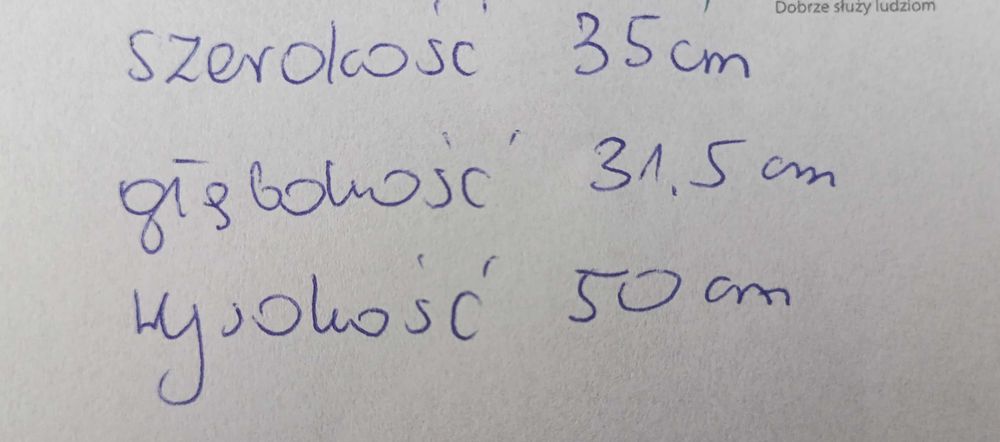 Dobrze służy ludziom
szerokość 35 cm
głębokość 31,5 cm
wysokość 50 cm